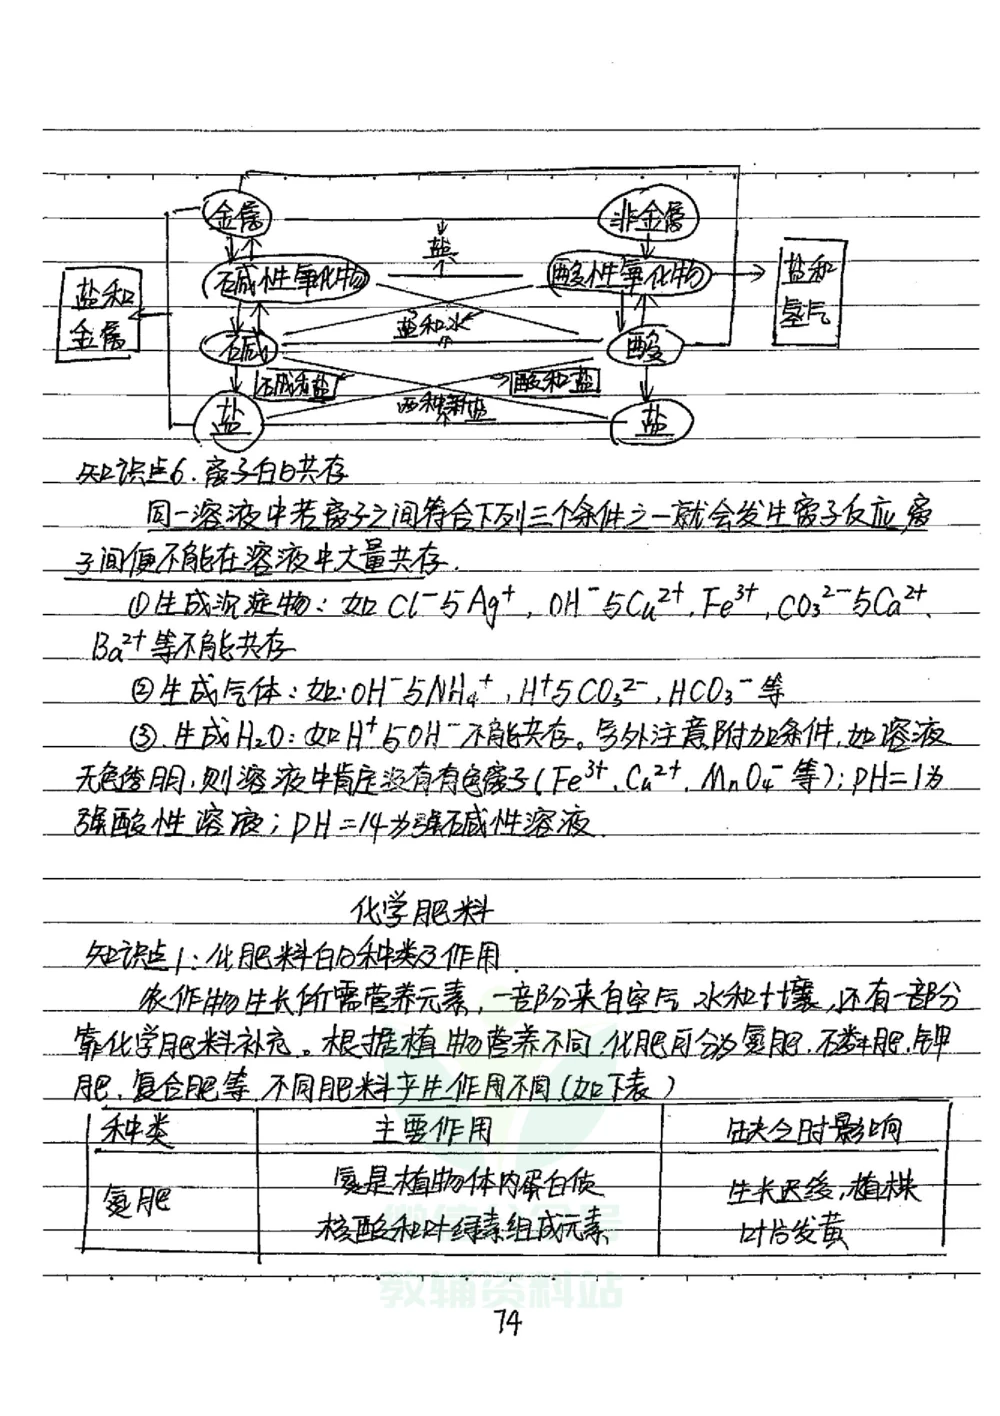 金属 非金属
盐
碱性氧化物 酸性氧化物 盐和氢气
盐和金属
盐和水
碱 酸
碱和盐 酸和盐
两种新盐
盐 盐
知识点6.离子的共存
同一溶液中若离子之间符合下列三个条件之一就会发生离子反应,离
子间便不能在溶液中大量共存.
①生成沉淀物:如Cl⁻与Ag⁺,OH⁻与Cu²⁺.Fe³⁺,CO₃²⁻与Ca²⁺、
Ba²⁺等不能共存
②生成气体:如:OH⁻与NH₄⁺,H⁺与CO₃²⁻,HCO₃⁻等
③.生成H₂O:如H⁺与OH⁻不能共存。另外注意附加条件,如溶液
无色透明,则溶液中肯定没有有色离子(Fe³⁺.Cu²⁺.MnO₄⁻等);pH=1为
强酸性溶液;pH=14为强碱性溶液.
化学肥料
知识点1:化肥料的种类及作用.
农作物生长所需营养元素,一部分来自空气、水和土壤,还有一部分
靠化学肥料补充。根据植物营养不同,化肥可分为氮肥.磷肥.钾
肥.复合肥等,不同肥料产生作用不同(如下表)
种类 主要作用 缺乏时影响
氮肥 氮是植物体内蛋白质 生长迟缓,植株
核酸和叶绿素组成元素 叶片发黄
教辅资料站
74